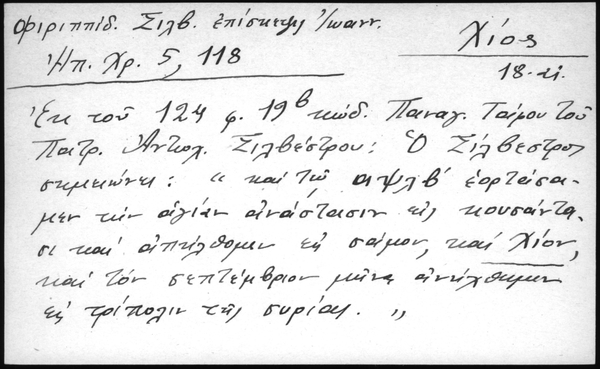 Φιριππίδ. Σιλβ. ἐπίσκεψη Ἰωανν.
Χίος
Ἠπ. Χρ. 5, 118
18-ΙΙ.
Ἐκ τοῦ 124 φ. 19β κώδ. Παναγ. Τάφου τοῦ
Πατρ. Ἀντιοχ. Σιλβέστρου: Ὁ Σίλβεστρος
σημειώνει: " καὶ τῷ αψλβ´ ἑορτάσα-
μεν τὴν ἁγίαν ἀνάστασιν εἰς κουσάντα-
σι καὶ ἀπήλθομεν εἰς σάμον, καὶ Χίον,
καὶ τὸν σεπτέμβριον μῆνα ἀνήλθαμεν
εἰς τρίπολιν τῆς συρίας. "